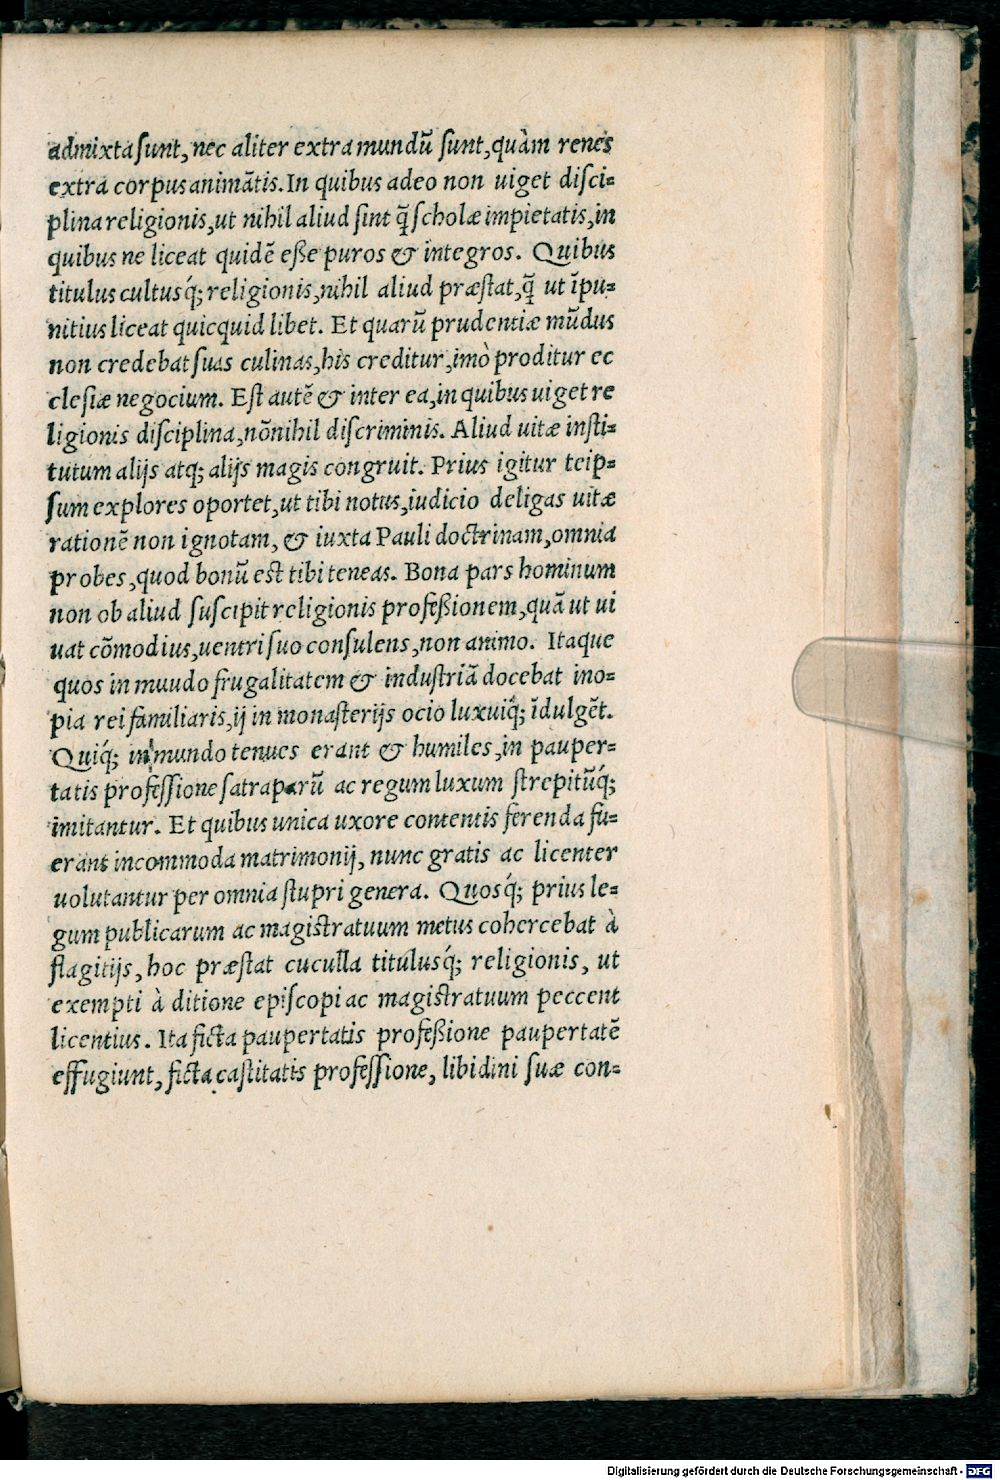 admixta sunt, nec aliter extra mundũ sunt, quàm renes
extra corpus animãtis. In quibus adeo non uiget disci=
plina religionis, ut nihil aliud sint q̃ scholæ impietatis, in
quibus ne liceat quidẽ eße puros & integros. Quibus
titulus cultusq́; religionis, nihil aliud præstat, q̃ ut ĩpu=
nitius liceat quicquid libet. Et quarũ prudentiæ mũdus
non credebat suas culinas, his creditur, imò proditur ec
clesiæ negocium. Est autẽ & inter ea, in quibus uiget re
ligionis disciplina, nõnihil discriminis. Aliud uitæ insti=
tutum alijs atq; alijs magis congruit. Prius igitur teip=
sum explores oportet, ut tibi notus, iudicio deligas uitæ
rationẽ non ignotam, & iuxta Pauli doctrinam, omnia
probes, quod bonũ est tibi teneas. Bona pars hominum
non ob aliud suscipit religionis profeßionem, quã ut ui
uat cõmodius, uentri suo consulens, non animo. Itaque
quos in muudo frugalitatem & industriã docebat ino=
pia rei familiaris, ij in monasterijs ocio luxuiq́; ĩdulgẽt.
Quiq́; in mundo tenues erant & humiles, in pauper=
tatis professione satraparũ ac regum luxum strepitũq́;
imitantur. Et quibus unica uxore contentis ferenda fu=
erant incommoda matrimonij, nunc gratis ac licenter
uolutantur per omnia stupri genera. Quosq́; prius le=
gum publicarum ac magistratuum metus cohercebat à
flagitijs, hoc præstat cuculla titulusq́; religionis, ut
exempti à ditione episcopi ac magistratuum peccent
licentius. Ita ficta paupertatis profeßione paupertatẽ
effugiunt, ficta castitatis professione, libidini suæ con=
Digitalisierung gefördert durch die Deutsche Forschungsgemeinschaft - DFG